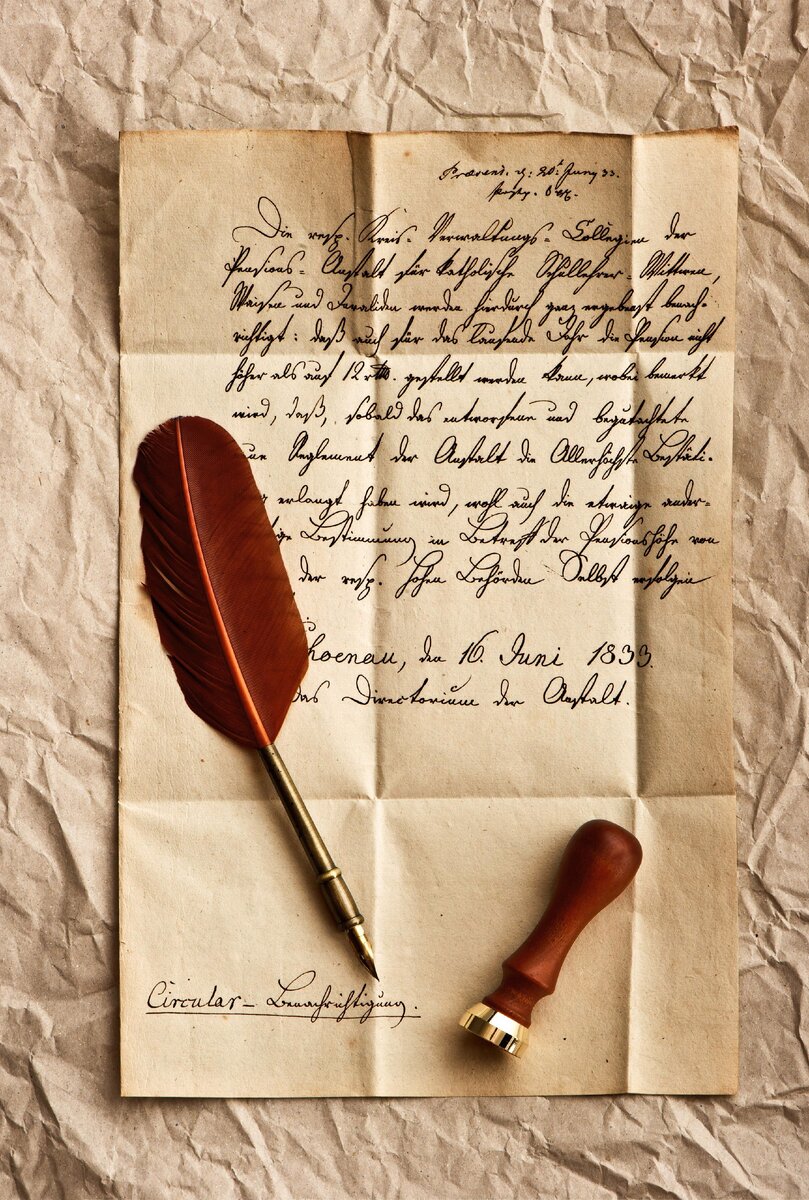 Præsent. d: 20t Juny 33.
Die resp. Kreis- Verwaltungs- Collegien der
Pensions- Anstalt für katholische Schullehrer- Wittwen,
Waisen und Invaliden werden hierdurch ganz ergebenst benach-
richtigt: daß auch für das laufende Jahr die Pension nicht
höher als auf 12 rth. gestellt werden kann, wobei bemerkt
wird, daß, sobald das entworfene und begutachtete
Reglement der Anstalt die Allerhöchste Bestäti-
erlangt haben wird, wohl auch die etwaige ander-
Bestimmung in Betreff der Pensionshöhe von
der resp. hohen Behörden Selbst erfolgen
hoenau, den 16. Juni 1833.
Das Directorium der Anstalt.
Circular- Benachrichtigung.